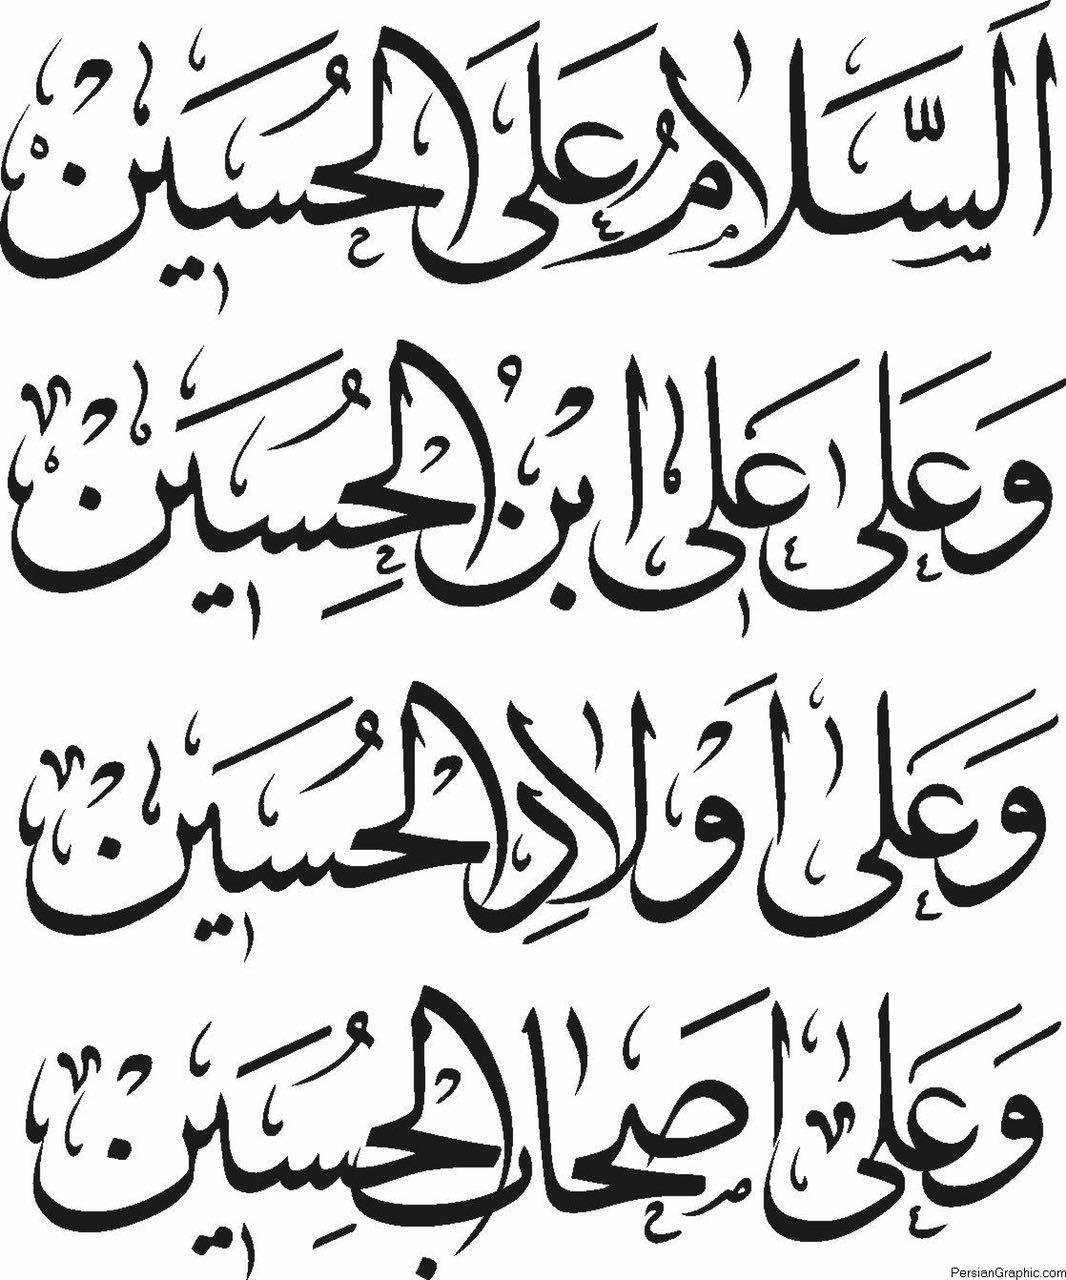 اَلسَّلامُ عَلَى الحُسَیْنْ
وَ عَلی عَلی ابْنُ الحُسِیْنْ
وَ عَلی اَوْلادِ الْحُسَیْنْ
وَ عَلی اَصْحابِ الْحُسِیْنْ
PersianGraphic.com